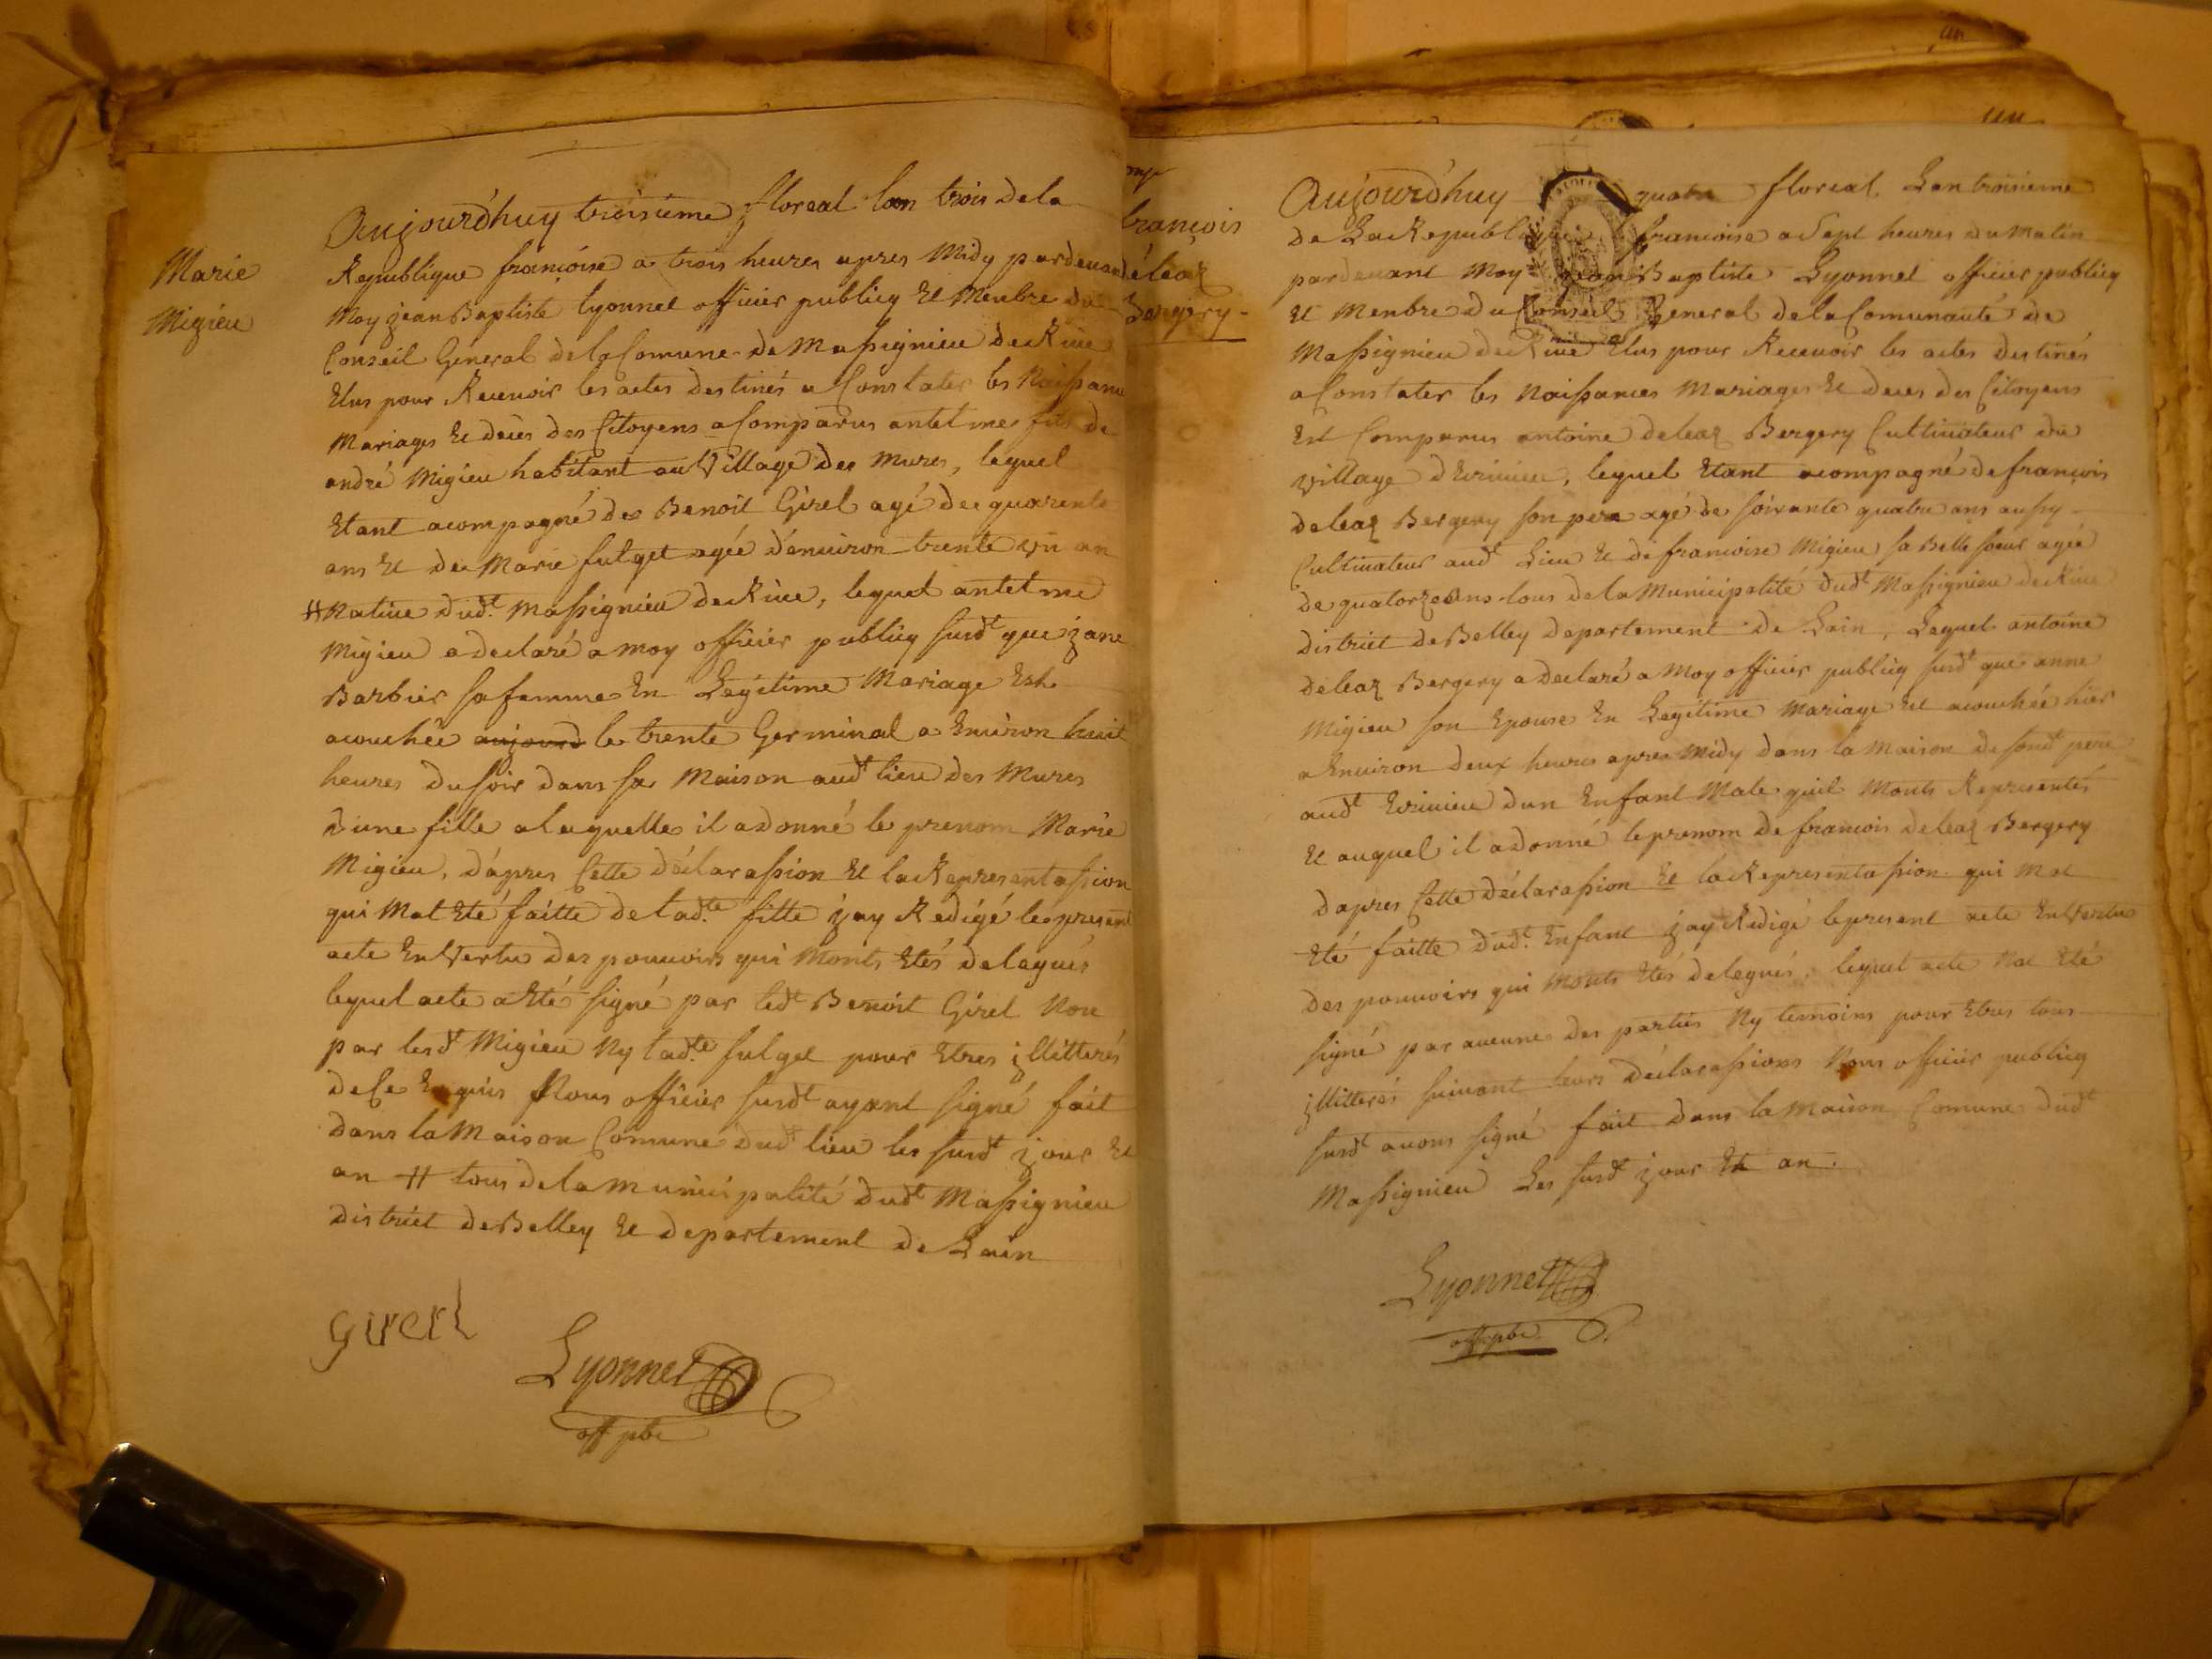 Marie
Migieu
Aujourd'huy troisieme floreal lan trois dela
Republique francoise a trois heures apres Midy pardevan
Moy jean Baptiste Lyonnet officier publicq Et Menbre du
Conseil General dela Comune de Maßignieu de Rive
Elus pour Recevoir les actes destinés a Constater les Naißance
Mariages Et deces des Citoyens a Comparus antelme fils de
andré Migieu habitant au Village des Mures, lequel
Etant acompagné de Benoit Girel agé de quarente
ans Et de Marie fulget agée d'environ trente un an
# Native dud.t Maßignieu de Rive, lequel antelme
Migieu a declaré a moy officier publicq susd.t que jane
Barbier sa femme En Legitime Mariage Est
acouchée aujourd le trente Germinal a Environ huit
heures du soir dans sa Maison aud.t lieu des Mures
dune fille a laquelle il a donné le prenom Marie
Migieu, d'apres Cette déclaraßion Et la Representaßion
qui Mat Eté faitte de lad.te fille jay Redigé le present
acte En Vertu des pouvoirs qui Monts Etés delagués
lequel acte a Eté signé par led.t Benoit Girel Non
par lesd.t Migieu Ny lad.te fulget pour Etres illitterés
de Ce Enquis Nous officier susd.t ayant signé fait
dans la Maison Comune dud.t lieu les susd.t jour Et
an # tous dela Municipalité dud.t Maßignieu
district de Belley Et departement de Lain
Girerl
Lyonnet
off pbc
françois
déleaz
Bergery
Aujourd'huy quatre floreal Lan troisieme
de La Republique francoise a Sept heures du Matin
pardevant Moy jean Baptiste Lyonnet officier publicq
Et Menbre du Conseil General dela Comunauté de
Maßignieu de Rive Elus pour Recevoir les actes destinés
a Constater les Naißances Mariages Et deces des Citoyens
Est Comparus antoine deleaz Bergery Cultivateur du
village d'Evinieu, lequel Etant acompagné de francois
deleaz Bergery son pere agé de soixante quatre ans außy
Cultivateur aud.t Lieu Et de francoise Migieu sa Belle soeur agée
de quatorze ans tous dela Municipalité dud.t Maßignieu de Rive
district de Belley departement de Lain, Lequel antoine
deleaz Bergery a declaré a Moy officier publicq susd.t que anne
Migieu son Epouse En Legitime Mariage Est acouchée hier
a Environ deux heures apres Midy dans la Maison de sond.t pere
aud.t Evinieu dun Enfant Male quil Monts Representés
Et auquel il a donné le prenom de francois deleaz Bergery
dapres Cette déclaraßion Et la Representaßion qui Mat
Eté faitte dud.t Enfant jay Redigé le present acte En Vertu
des pouvoirs qui Monts Etés delegués, lequel acte Nat Eté
signé par aucune des parties Ny temoins pour Etres tous
illitterés suivant leurs déclaraßions Nous officier publicq
susd.t avons signé fait dans la Maison Comune dud.t
Maßignieu Les susd.t jour Et an.
Lyonnet
off pbc